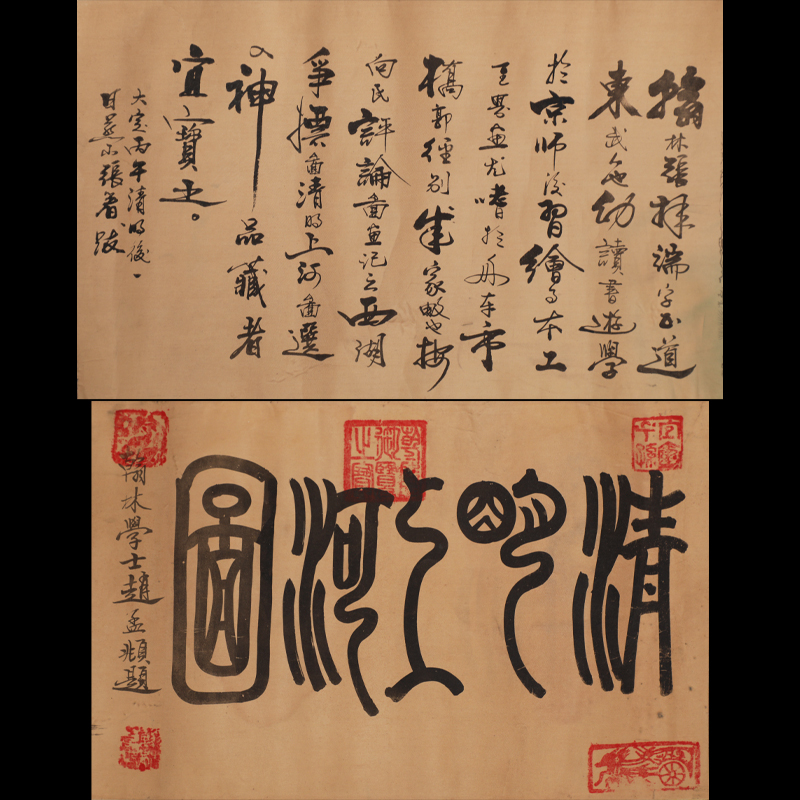 翰林張擇端字正道
東武人也幼讀書遊學
於京師後習繪事本工
其界畫尤嗜於舟車市
橋郭徑別成家數也按
向氏評論圖畫記云西湖
爭標圖清明上河圖選
入神品藏者
宜寶之。
大定丙午清明後一
日燕山張著跋
清明上河圖
翰林學士趙孟頫題
乾隆御覽之寶